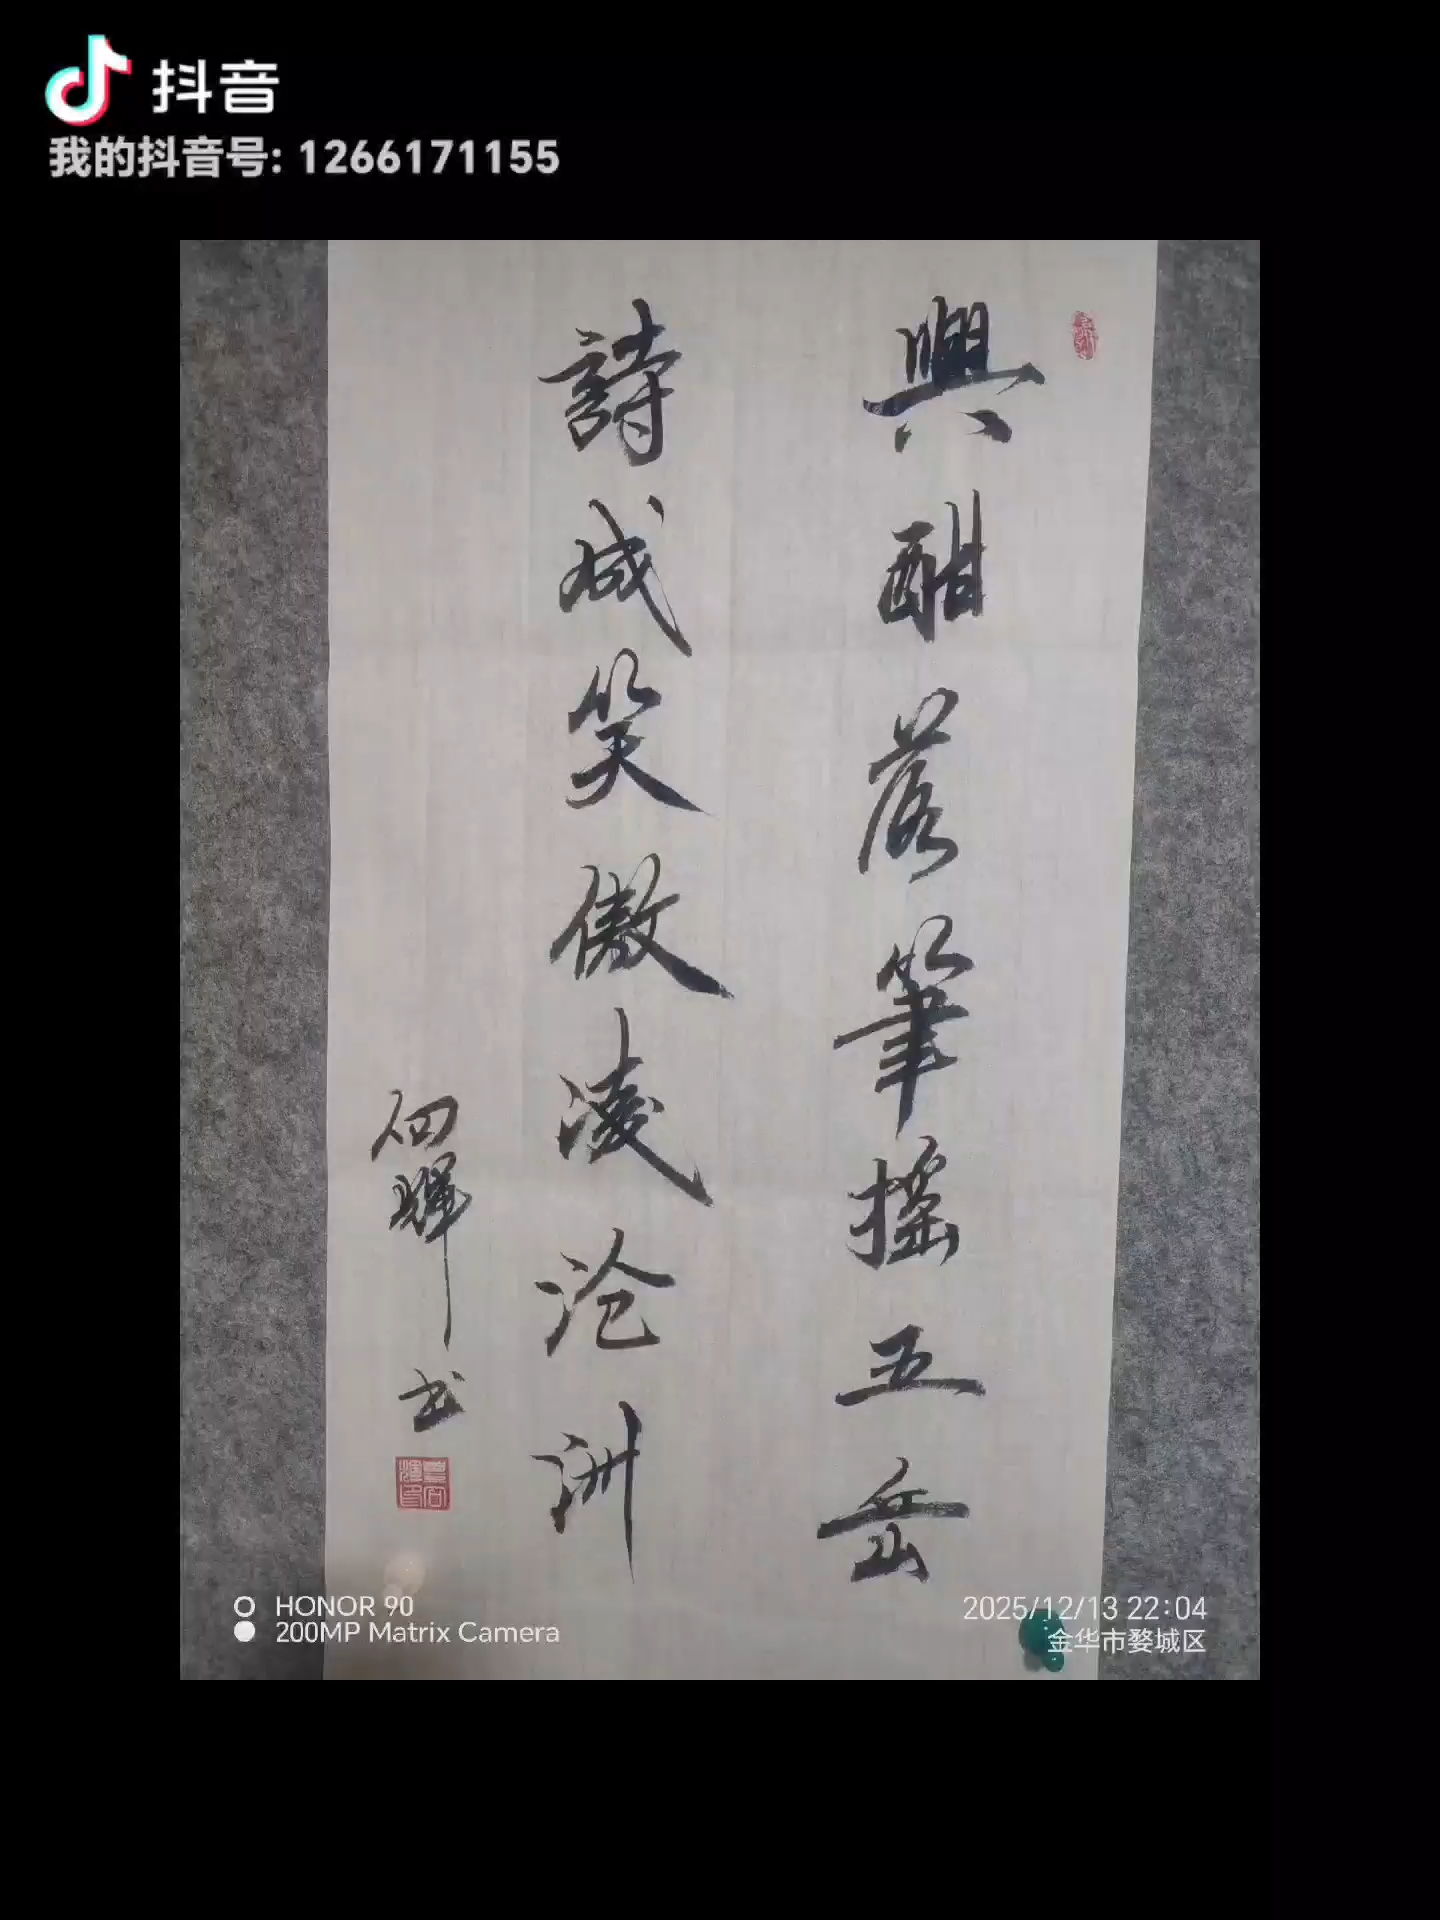 抖音
我的抖音号: 1266171155
興酣落筆搖五岳
詩成笑傲凌沧洲
书
HONOR 90
200MP Matrix Camera
2025/12/13 22:04
金华市婺城区